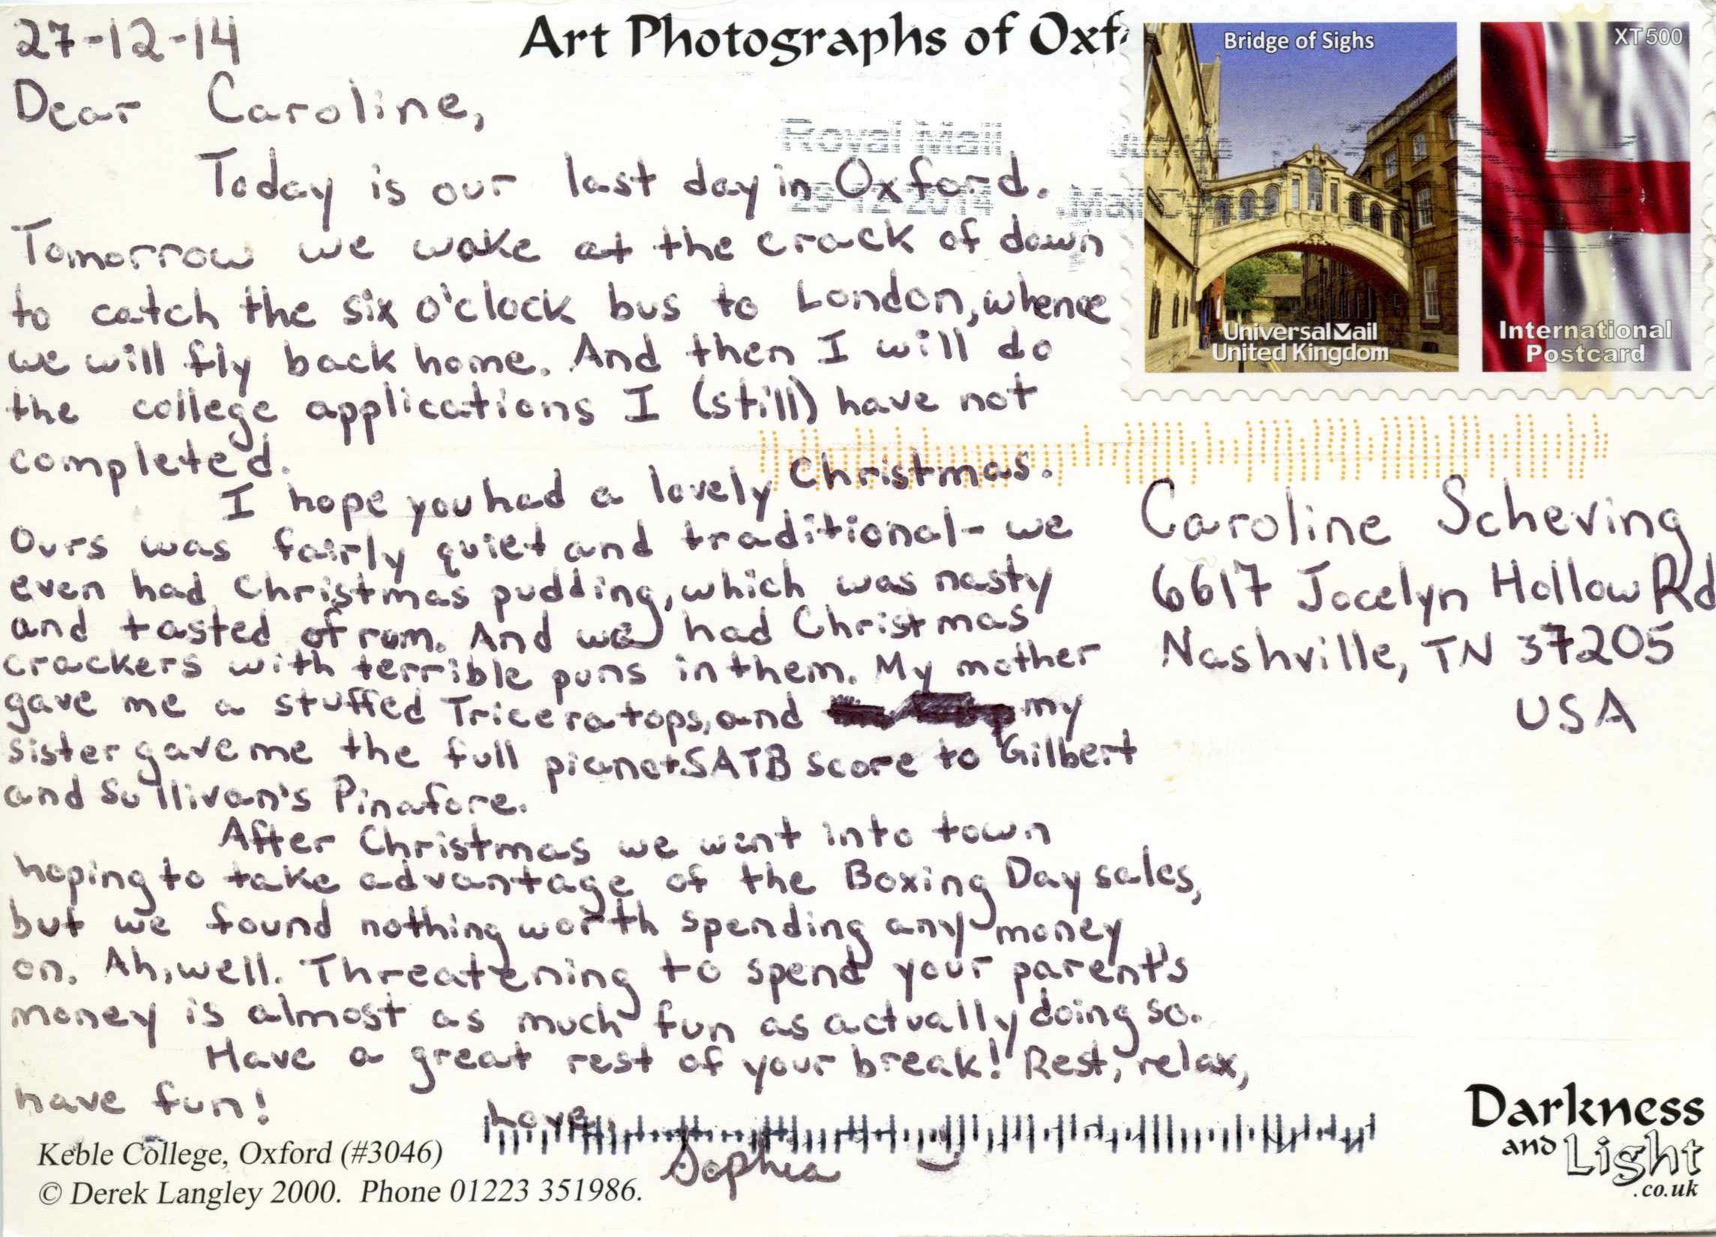 27-12-14
Art Photographs of Oxf
Bridge of Sighs
XT500
Dear Caroline,
Royal Mail
Today is our last day in Oxford.
29-12-2014
Tomorrow we wake at the crack of dawn
to catch the six o'clock bus to London, whence
UniversalMail
United Kingdom
International
Postcard
we will fly back home. And then I will do
the college applications I (still) have not
completed.
I hope you had a lovely Christmas.
Ours was fairly quiet and traditional- we
even had Christmas pudding, which was nasty
and tasted of rum. And we had Christmas
crackers with terrible puns in them. My mother
gave me a stuffed Triceratops, and my
sister gave me the full piano+SATB score to Gilbert
and Sullivan's Pinafore.
After Christmas we went into town
hoping to take advantage of the Boxing Day sales,
but we found nothing worth spending any money
on. Ah, well. Threatening to spend your parent's
money is almost as much fun as actually doing so.
Have a great rest of your break! Rest, relax,
have fun!
Love,
Sophia
Caroline Scheving
6617 Jocelyn Hollow Rd
Nashville, TN 37205
USA
Keble College, Oxford (#3046)
© Derek Langley 2000. Phone 01223 351986.
Darkness
and Light
.co.uk